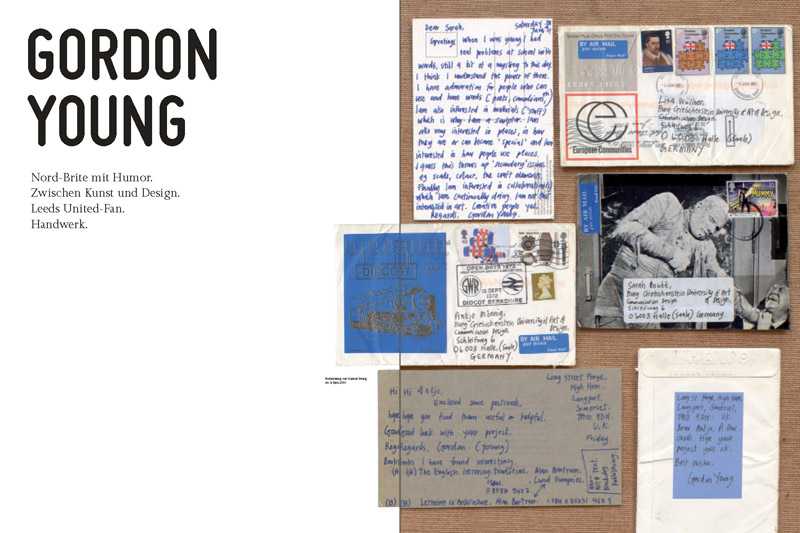 GORDON
YOUNG
Nord-Brite mit Humor.
Zwischen Kunst und Design.
Leeds United-Fan.
Handwerk.
Dear Sarah,
Saturday
Greetings, When I was young I had
real problems at school with
words, still a bit of a mystery to this day.
I think I understand the power of them.
I have admiration for people who can
use and have words (poets, comedians, etc)
I am also interested in materials ('stuff')
which is why I am a sculptor. I am
also very interested in places, in how
they are or can become 'special' and am
interested in how people use places.
I guess this throws up 'secondary' issues,
eg scale, colour, the craft elements.
Finally I am interested in collaborations
which I am continually doing. I am not that
interested in art. Creative people yes.
Regards. Gordon Young.
BY AIR MAIL
par avion
European Communities
Lisa Wüllner
Burg Griebichenstein University of Art & Design.
Communication Design
Schleifweg 6
O 6003 Halle (Saale)
GERMANY
BY AIR MAIL
par avion
MUMMY
Sarah Boutté,
Burg Griebichenstein University of Art
of Design.
Communication Design
Schleifweg 6
O 6003 Halle (Saale) Germany.
DIDCOT
OPEN DAYS 1972
GWR
16 SEPT
1972
DIDCOT BERKSHIRE
Antje Mönnig,
Burg Griebichenstein University of Art of
Design.
Communication Design
Schleifweg 6
O 6003 Halle, (Saale)
GERMANY.
BY AIR MAIL
par avion
Long Street Forge,
High Ham.
Langport,
Somerset.
TA10 9DN.
U.K.
Friday
Hi Hi Antje,
Enclosed some postcards,
hope hope you find them useful or helpful.
Good Good luck with your project.
Regards Regards, Gordon (Young)
Books books I have found interesting
(A) (A) The English Lettering Tradition. Alan Bartram,
Lund Humphries.
(B) (B) Lettering in Architecture, Alan Bartram.
Long St Forge, High Ham,
Langport, Somerset,
TA10 9DN. UK.
Dear Antje, A few
cards. Hope your
project goes ok.
Best wishes.
Gordon Young